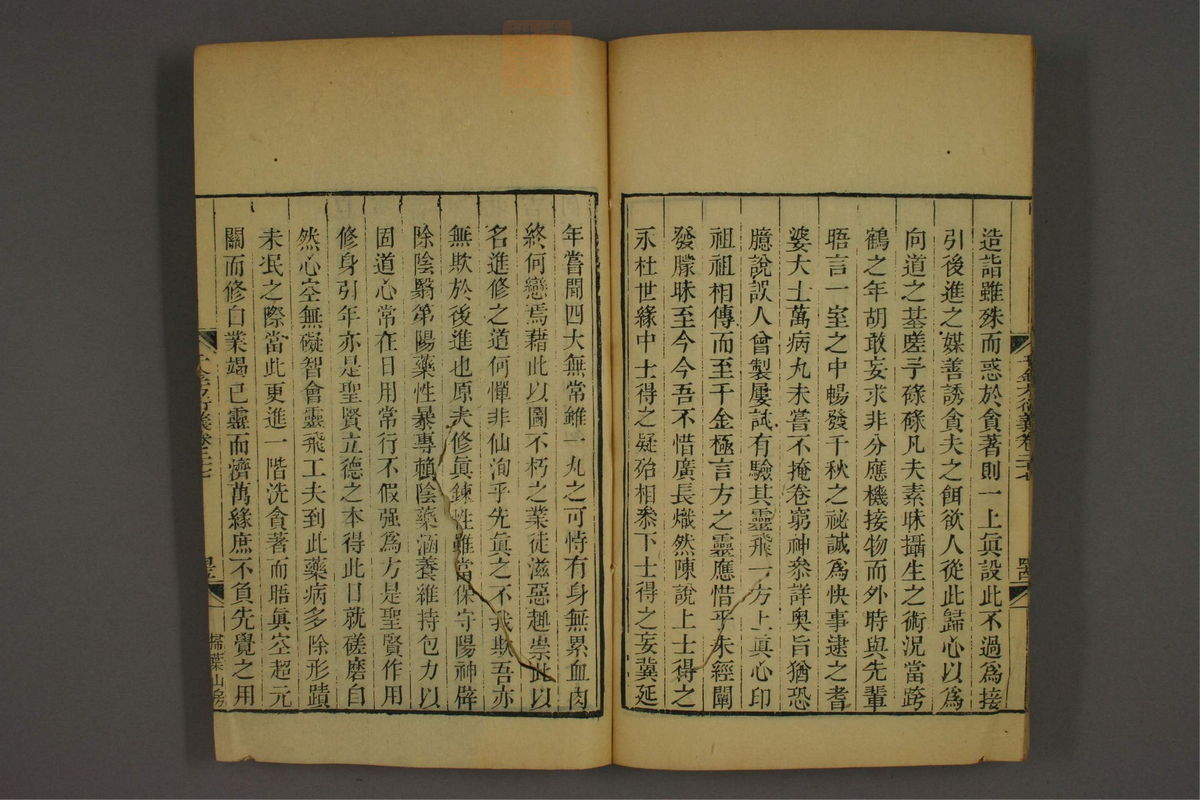 造詣雖殊而惑於貪著則一上眞設此不過爲接
引後進之媒善誘貪夫之餌欲人從此歸心以爲
向道之基嗟予碌碌凡夫素昧攝生之術況當跨
鶴之年胡敢妄求非分應機接物而外時與先輩
晤言一室之中暢發千秋之祕誠爲快事逮之耆
婆大士萬病丸未嘗不掩卷窮神叅詳奧旨猶恐
臆說誤人曾製屢試有驗其靈飛一方上眞心印
祖祖相傳而至千金極言方之靈應惜乎未經闡
發朦昧至今今吾不惜廣長熾然陳說上士得之
永杜世緣中士得之疑殆相叅下士得之妄冀延
年嘗聞四大無常雖一丸之可恃有身無累血肉
終何戀焉藉此以圖不朽之業徒滋惡趣祟此以
名進修之道何憚非仙洵乎先眞之不我欺吾亦
無欺於後進也原夫修眞鍊性雖當保守陽神辟
除陰翳第陽藥性暴專賴陰藥涵養維持包力以
固道心常在日用常行不假强爲方是聖賢作用
修身引年亦是聖賢立德之本得此日就磋磨自
然心空無礙智會靈飛工夫到此藥病多除形蹟
未泯之際當此更進一階洗貪著而晤眞空超元
關而修白業竭已靈而濟萬緣庶不負先覺之用
千金方衍義卷二十七
掃葉山房